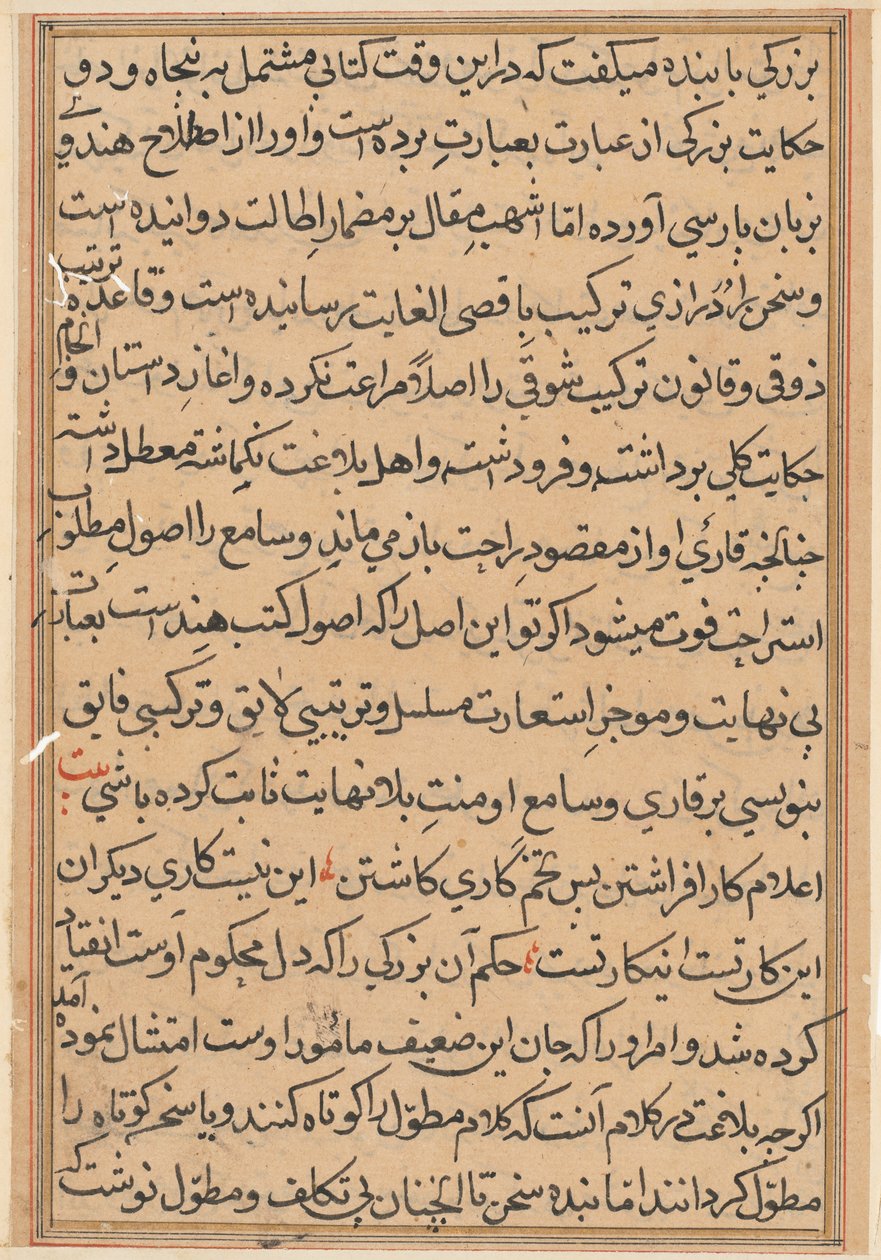 بزرکي با بنده ميکفت که دراين وقت کتابي مشتمل به پنجاه و دو
حکايت بزرکی از عبارت بعبارتِ برده است واورا از اصطلاح هندوي
بزبان پارسي آورده امّا اشهب مِقال بر مضمارِ اِطالت دوانيده است
وسخن را دُرازي ترکيب باِقصی الغايت رسانيده است وقاعدهٔ ترتيب
ذوقی وقانون ترکيب شوقي را اصلاً مراعت نکرده واغازِ داستان وانجام
حکايت کلي برداشته وفرود اشته واهل بلاغت نکماشته معطل داشته
چنانچه قارئي او از مقصودِ راحت باز مي ماند وسامع را اصولِ مطلوب
استراحت فوت ميشود اکر تو اين اصل را که اصول کتب هند است بعبارت
بي نهايت وموجز استعارت مسلسل وترتيبي لايق وترکيبي فايق
بنويسي بر قاري وسامع او منتِ بلا نهايت ثابت کرده باشي بيت
اعلام کار افراشتن پس تخم کاري کاشتن اين نيست کاري ديکران
اين کار تست اينکار تست حکم آن بزرکي را که دل محکوم اوست انقياد
کرده شد وامر اورا که جان اين ضعيف مامور اوست امتثال نموده آمد
اکرچه بلاغت در کلام آنست که کلام مطوّل را کوتاه کنند ويا سخن کوتاه را
مطوّل کردانند امّا بنده سخن تا الجنان بي تکلف ومطوّل نوشت که